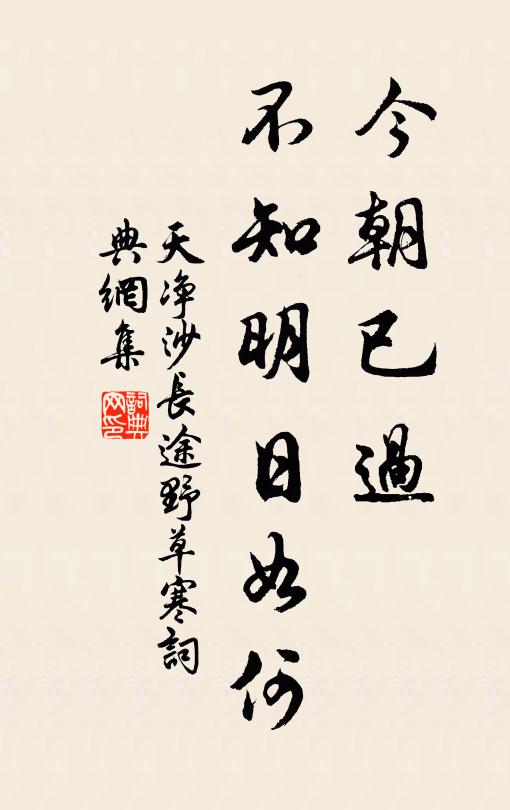 今朝已過
不知明日如何
天净沙長途野草寒詞
典網集
詞典网印